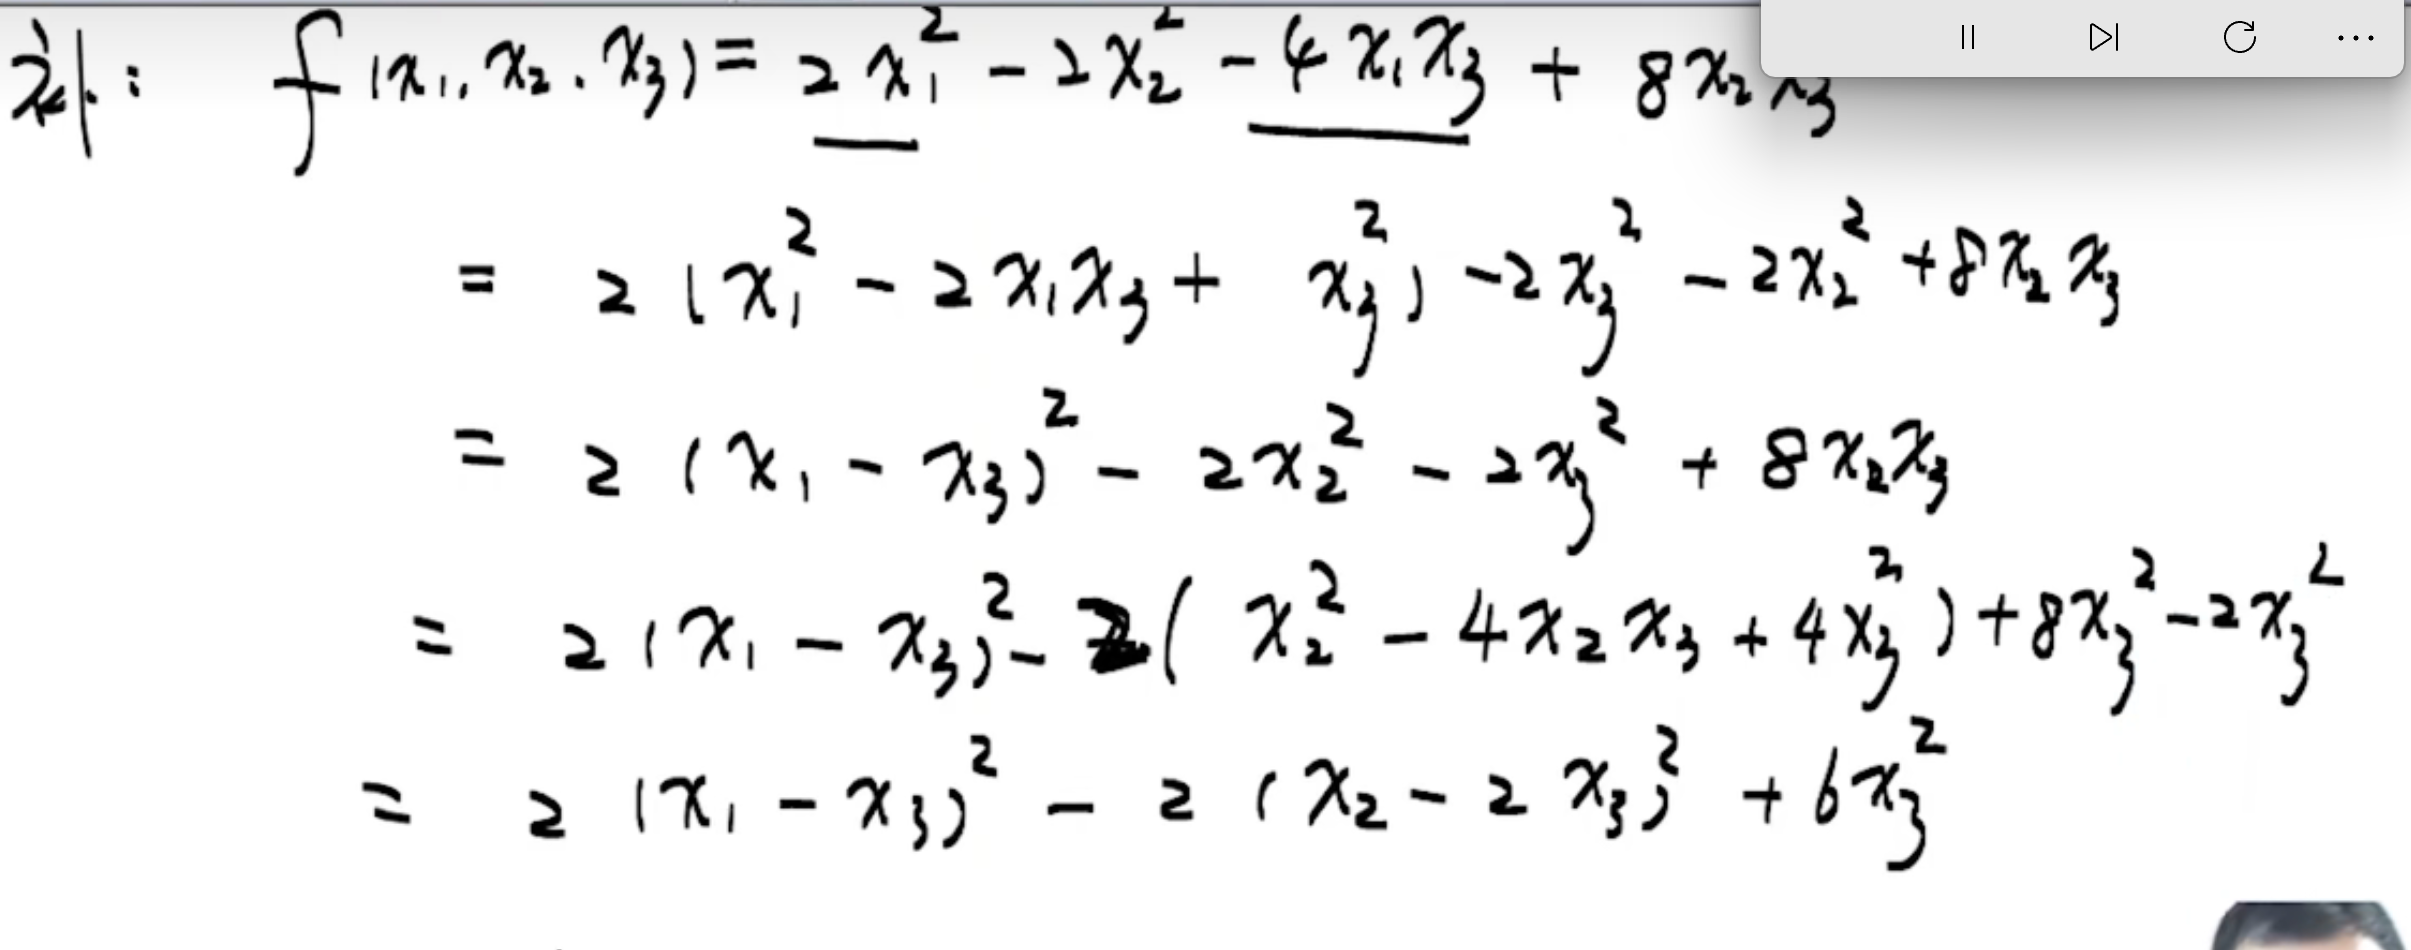 f(x₁, x₂, x₃) = 2x₁² - 2x₂² - 4x₁x₃ + 8x₂x₃
= 2(x₁² - 2x₁x₃ + x₃²) - 2x₃² - 2x₂² + 8x₂x₃
= 2(x₁ - x₃)² - 2x₂² - 2x₃² + 8x₂x₃
= 2(x₁ - x₃)² - 2(x₂² - 4x₂x₃ + 4x₃²) + 8x₃² - 2x₃²
= 2(x₁ - x₃)² - 2(x₂ - 2x₃)² + 6x₃²